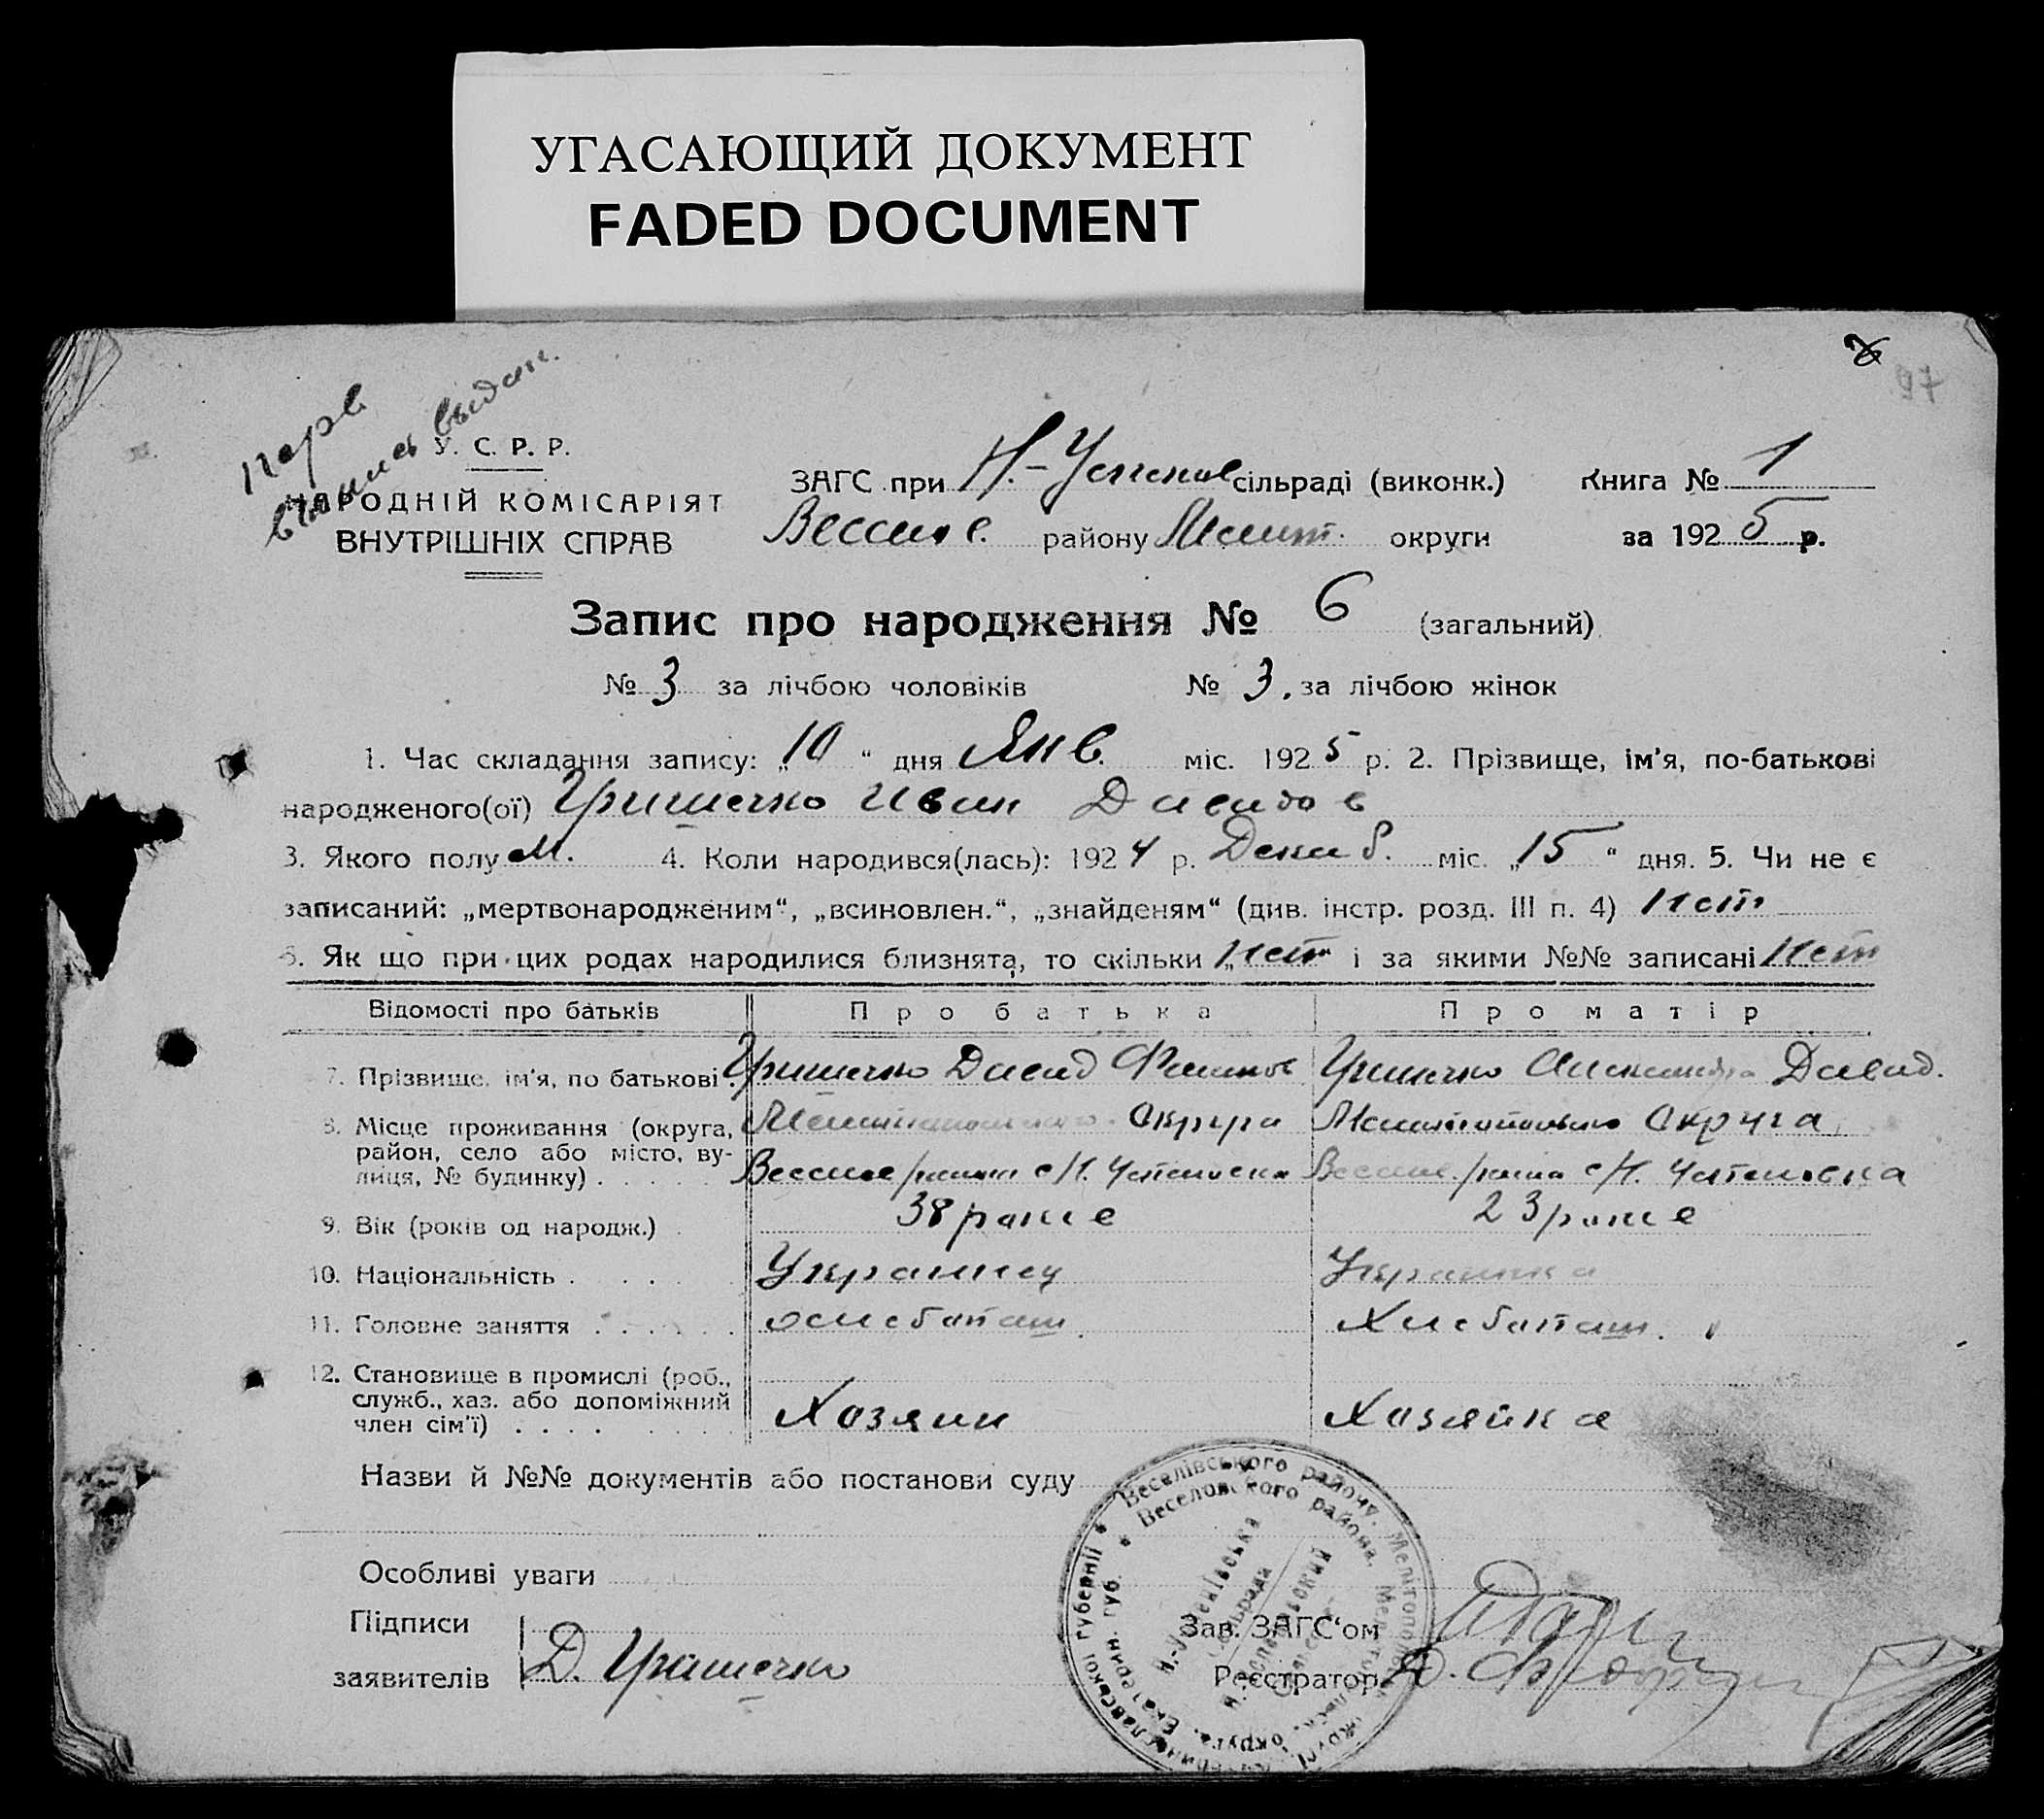 УГАСАЮЩИЙ ДОКУМЕНТ
FADED DOCUMENT
97
перв
выпись выдан.
У. С. Р. Р.
НАРОДНІЙ КОМІСАРІЯТ
ВНУТРІШНІХ СПРАВ
ЗАГС при Н.-Успенов сільраді (виконк.) Книга № 1
Веселов. району Мелит. округи за 1925 р.
Запис про народження № 6 (загальний)
№ 3 за лічбою чоловіків № 3. за лічбою жінок
1. Час складання запису: „10“ дня Янв. міс. 1925 р. 2. Прізвище, ім'я, по-батькові
народженого(ої) Гришечко Иван Давидов
3. Якого полу м. 4. Коли народився(лась): 1924 р. Декаб. міс. „15“ дня. 5. Чи не є
записаний: „мертвонародженим“, „всиновлен.“, „знайденям“ (див. інстр. розд. III п. 4) нет
6. Як що при цих родах народилися близнята, то скільки „нет“ і за якими №№ записані нет
Відомості про батьків Про батька Про матір
7. Прізвище, ім'я, по батькові . Гришечко Давид Гришечко Александра Давид.
8. Місце проживання (округа, Мелитопольского Округа Мелитопольского Округа
район, село або місто, ву-
лиця, № будинку) . . . . . Веселов района с/Н. Успеновка Веселов. района с/Н. Успеновка
9. Вік (років од народж.) . 38 23
10. Національність . . . . . Украинец Украинка
11. Головне заняття . . . . . . хлебопаш. Хлебопаш.
12. Становище в промислі (роб.,
служб., хаз. або допоміжний
член сім'ї) . . . . . . . . Хозяин Хозяйка
Назви й №№ документів або постанови суду
Особливі уваги
Підписи
заявителів Д. Гришечко
Зав. ЗАГС'ом
Реєстратор
Веселівського району, Мелітопольської округи, Катеринославської губернії
Веселовского района, Мелитопольск. округа, Екатерин. губ.
Н.-Успенівська
сільрада
Н.-Успеновский
сельсовет